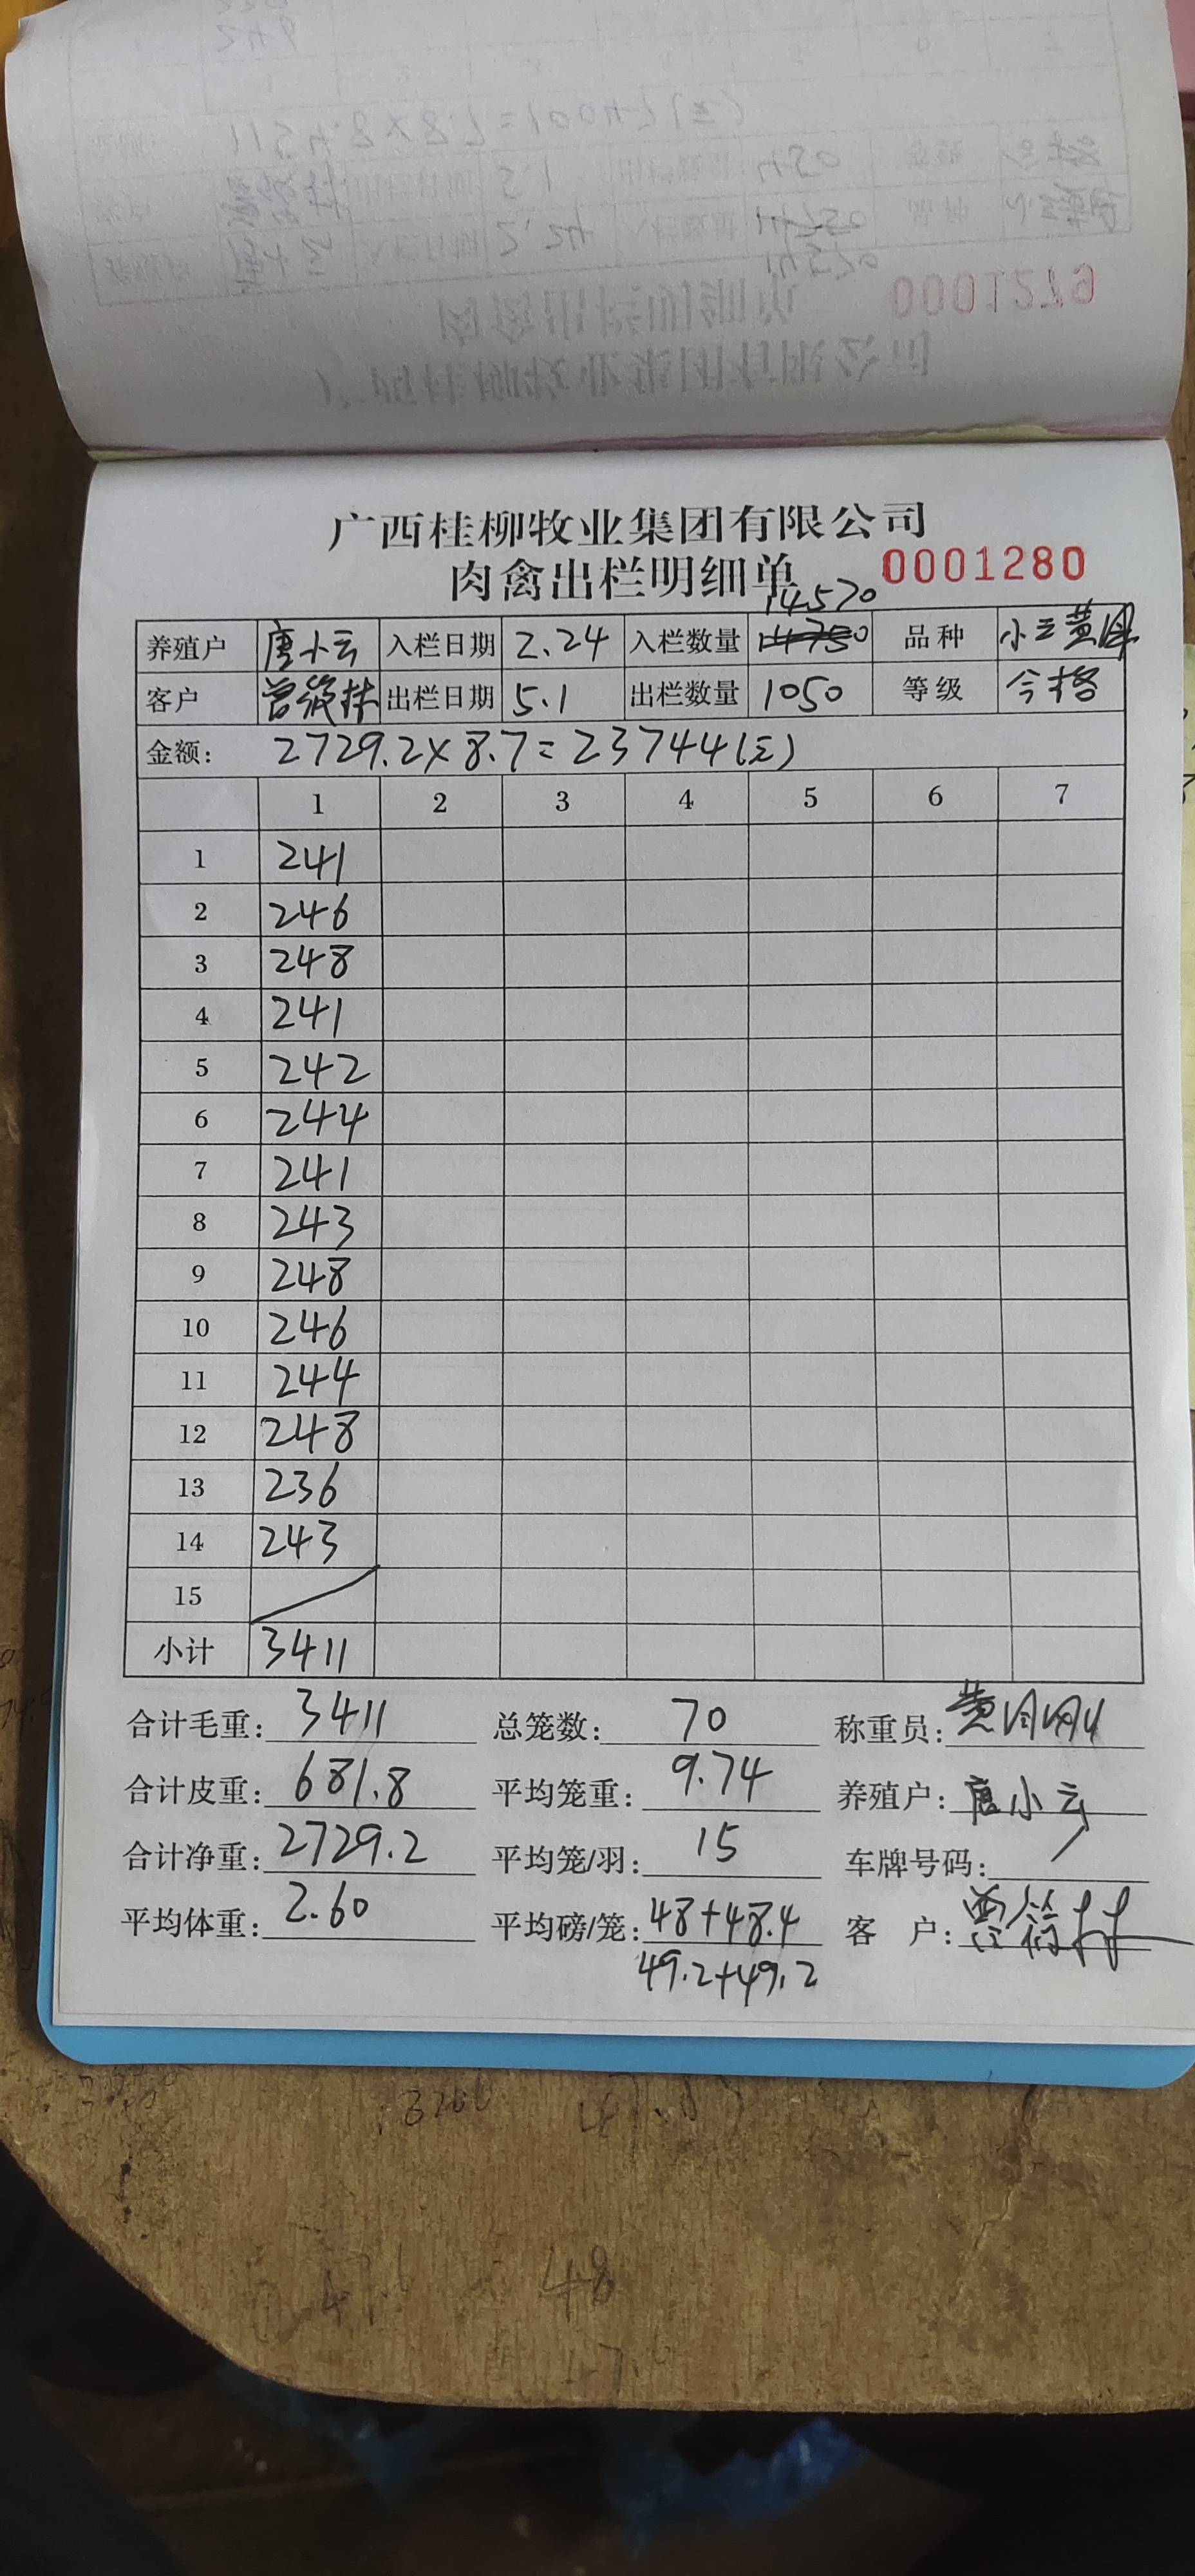 广西桂柳牧业集团有限公司
肉禽出栏明细单 0001280
14570
养殖户 唐小云 入栏日期 2.24 入栏数量 品种 小三黄
客户 出栏日期 5.1 出栏数量 1050 等级 合格
金额: 2729.2×8.7=23744(元)
1 2 3 4 5 6 7
1 241
2 246
3 248
4 241
5 242
6 244
7 241
8 243
9 248
10 246
11 244
12 248
13 236
14 243
15
小计 3411
合计毛重: 3411 总笼数: 70 称重员: 黄
合计皮重: 681.8 平均笼重: 9.74 养殖户: 唐小云
合计净重: 2729.2 平均笼/羽: 15 车牌号码: /
平均体重: 2.60 平均磅/笼: 48+48.4 客 户:
49.2+49.2